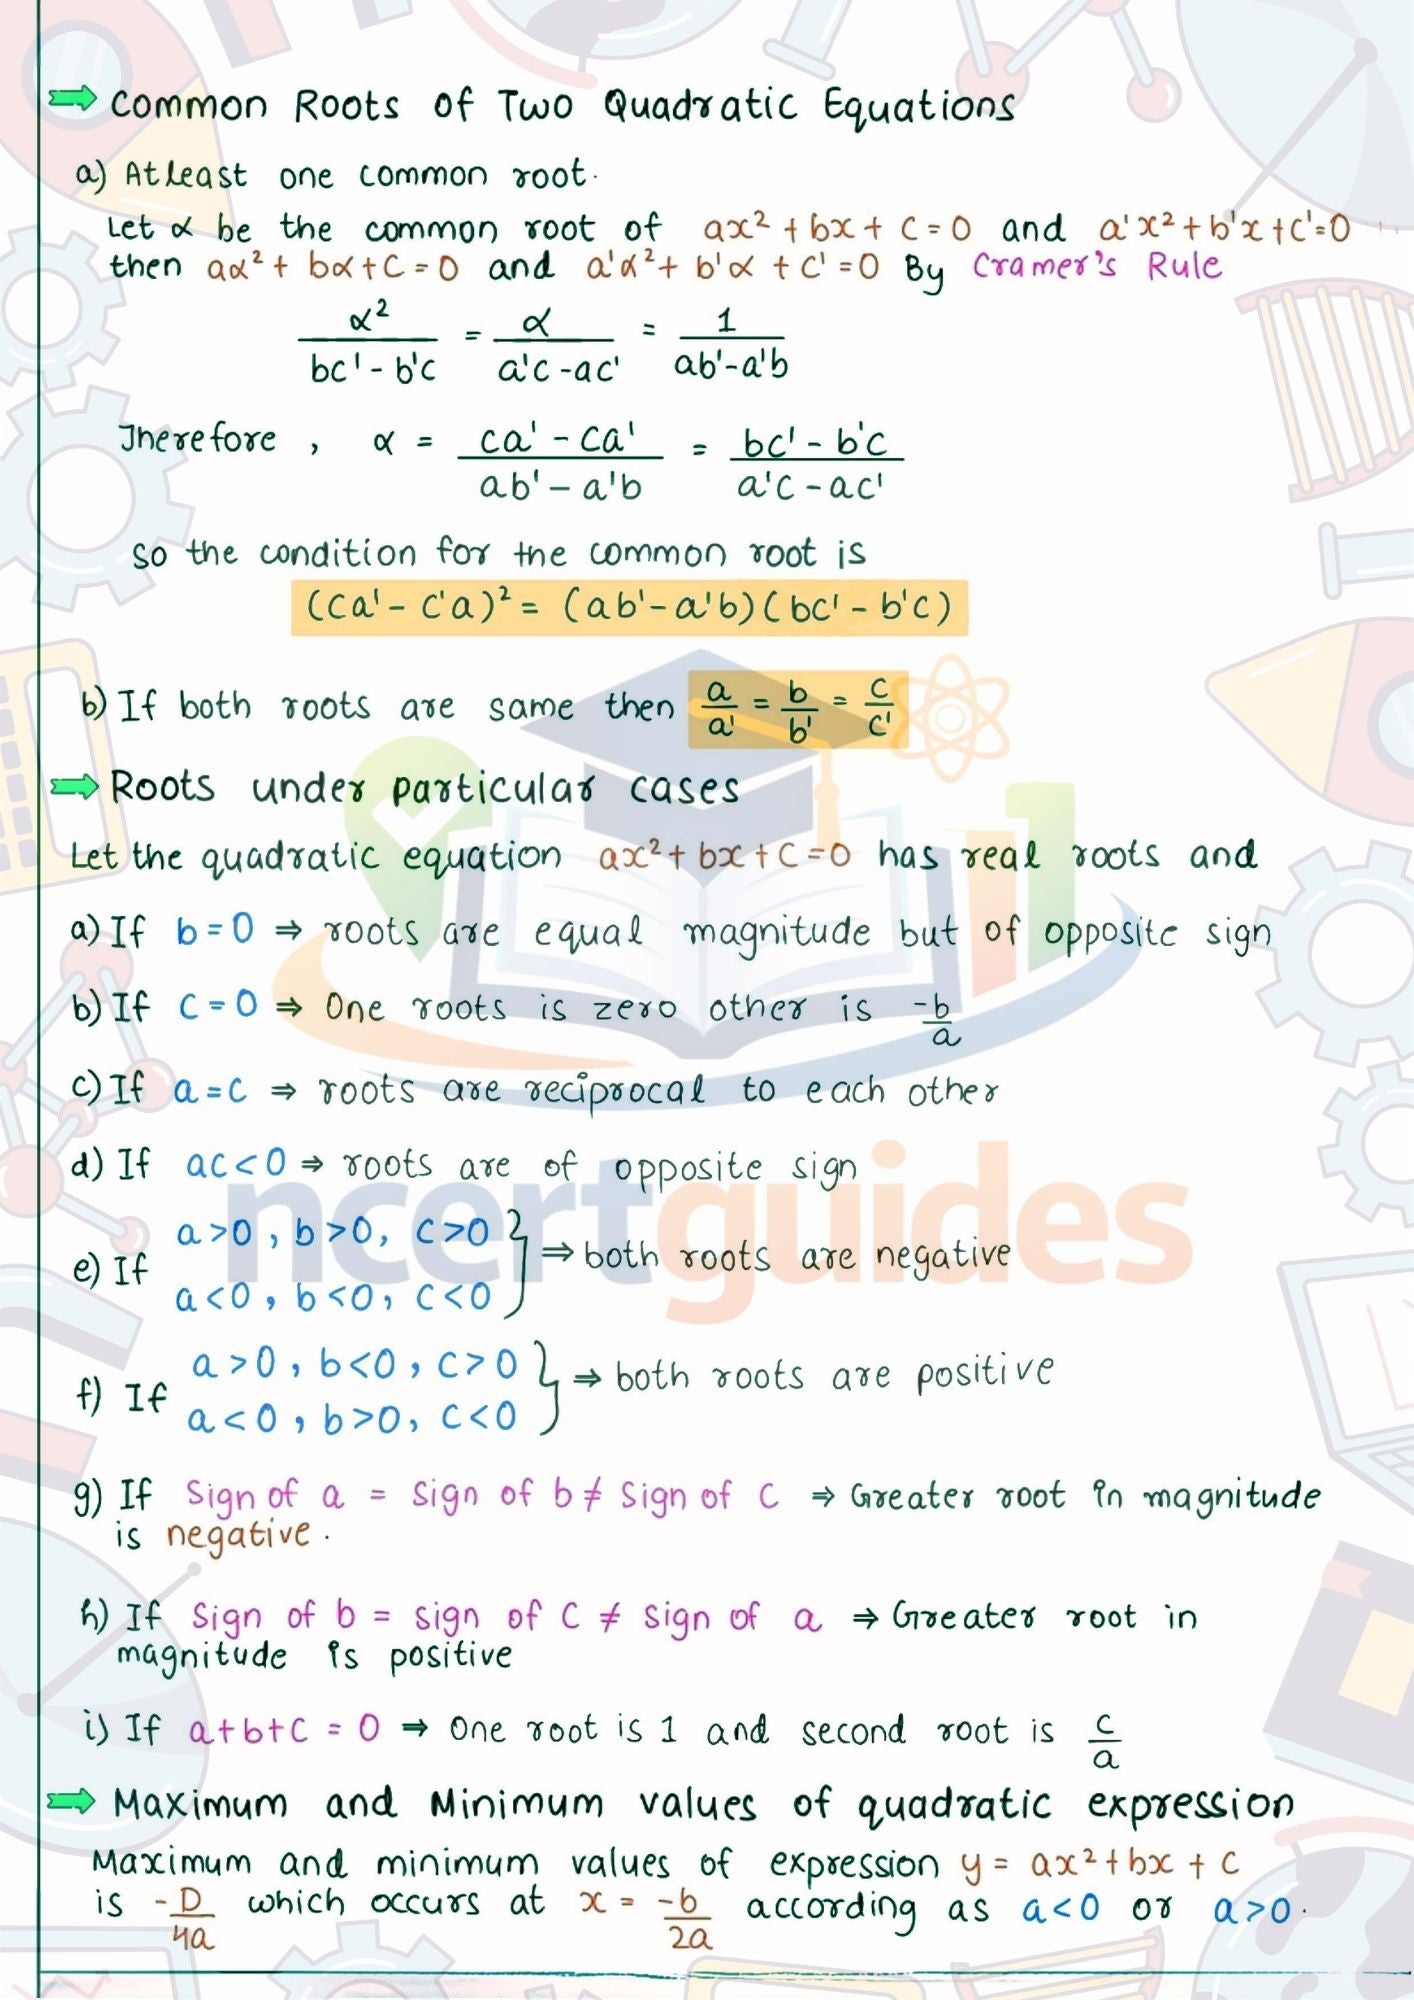 Common Roots of Two Quadratic Equations
a) Atleast one common root.
Let α be the common root of ax² + bx + c = 0 and a'x² + b'x + c' = 0
then aα² + bα + c = 0 and a'α² + b'α + c' = 0 By Cramer's Rule
α² / (bc' - b'c) = α / (a'c - ac') = 1 / (ab' - a'b)
Therefore , α = (ca' - ca') / (ab' - a'b) = (bc' - b'c) / (a'c - ac')
So the condition for the common root is
(ca' - c'a)² = (ab' - a'b)(bc' - b'c)
b) If both roots are same then a/a' = b/b' = c/c'
⇒ Roots under particular cases
Let the quadratic equation ax² + bx + c = 0 has real roots and
a) If b = 0 ⇒ roots are equal magnitude but of opposite sign
b) If c = 0 ⇒ One roots is zero other is -b/a
c) If a = c ⇒ roots are reciprocal to each other
d) If ac < 0 ⇒ roots are of opposite sign
ncertguides
a > 0 , b > 0, c > 0
e) If } ⇒ both roots are negative
a < 0 , b < 0, c < 0
a > 0 , b < 0 , c > 0
f) If } ⇒ both roots are positive
a < 0 , b > 0, c < 0
g) If Sign of a = Sign of b ≠ Sign of c ⇒ Greater root in magnitude
is negative.
h) If Sign of b = sign of c ≠ Sign of a ⇒ Greater root in
magnitude is positive
i) If a + b + c = 0 ⇒ One root is 1 and second root is c/a
⇒ Maximum and Minimum values of quadratic expression
Maximum and minimum values of expression y = ax² + bx + c
is -D/4a which occurs at x = -b/2a according as a < 0 or a > 0.